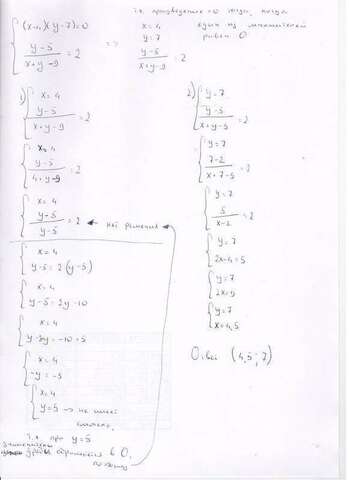 { (x-4)(y-7)=0
(y-5)/(x+y-9) = 2
=>
т.к. произведение =0 тогда, когда
один из множителей
равен 0
x=4
y=7
(y-5)/(x+y-9) = 2
1) { x=4
(y-5)/(x+y-9) = 2
{ x=4
(y-5)/(4+y-9) = 2
{ x=4
(y-5)/(y-5) = 2 ← нет решения
{ x=4
y-5=2(y-5)
{ x=4
y-5=2y-10
{ x=4
y-2y=-10+5
{ x=4
-y=-5
{ x=4
y=5 → не имеет
смысла,
т.к. при y=5
знаменатель
дроби обращается в 0,
поэтому
2) { y=7
(y-5)/(x+y-9) = 2
{ y=7
(7-2)/(x+7-9) = 2
{ y=7
5/(x-2) = 2
{ y=7
2x-4=5
{ y=7
2x=9
{ y=7
x=4,5
Ответ (4,5; 7)